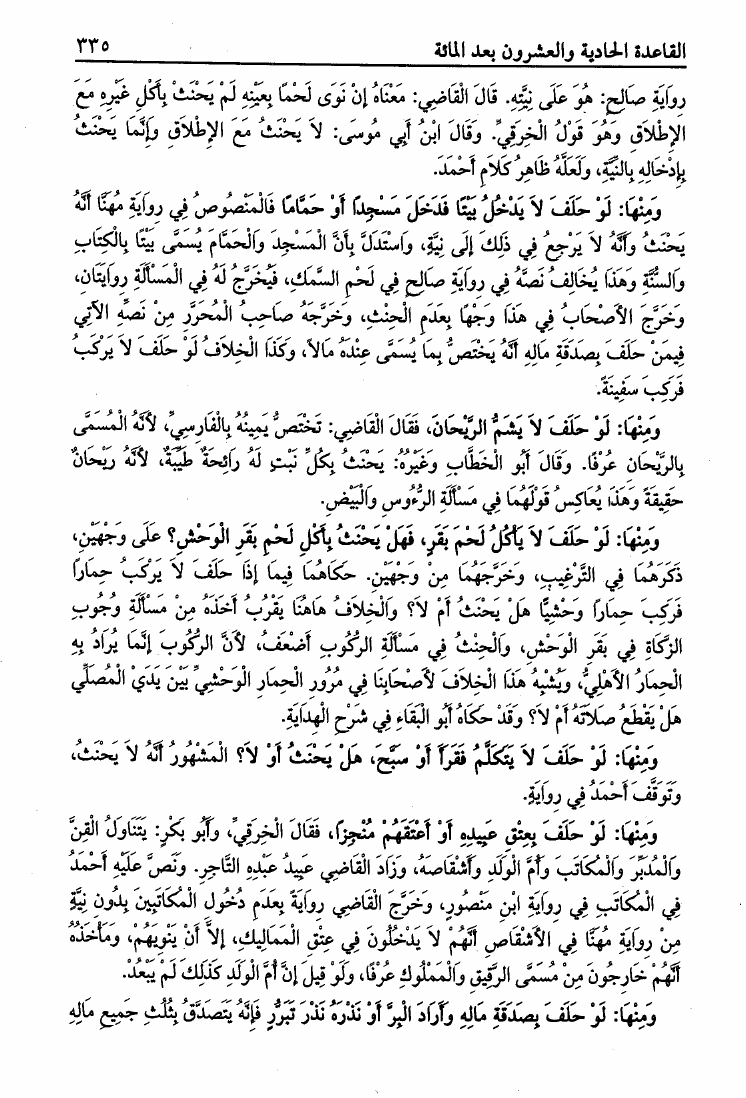 القاعدة الحادية والعشرون بعد المائة ٣٣٥
رِوَايَةِ صَالِحٍ: هُوَ عَلَى نِيَّتِهِ. قَالَ الْقَاضِي: مَعْنَاهُ إِنْ نَوَى لَحْمًا بِعَيْنِهِ لَمْ يَحْنَثْ بِأَكْلِ غَيْرِهِ مَعَ
الإِطْلاَقِ وَهُوَ قَوْلُ الْخِرَقِيِّ. وَقَالَ ابْنُ أَبِي مُوسَى: لاَ يَحْنَثُ مَعَ الإِطْلاَقِ وَإِنَّمَا يَحْنَثُ
بِإِدْخَالِهِ بِالنِّيَّةِ، وَلَعَلَّهُ ظَاهِرُ كَلاَمِ أَحْمَدَ.
وَمِنْهَا: لَوْ حَلَفَ لاَ يَدْخُلُ بَيْتًا فَدَخَلَ مَسْجِدًا أَوْ حَمَّامًا فَالْمَنْصُوصُ فِي رِوَايَةِ مُهَنَّا أَنَّهُ
يَحْنَثُ وَأَنَّهُ لاَ يَرْجِعُ فِي ذَلِكَ إِلَى نِيَّةٍ، وَاسْتَدَلَّ بِأَنَّ الْمَسْجِدَ وَالْحَمَّامَ يُسَمَّى بَيْتًا بِالْكِتَابِ
وَالسُّنَّةِ وَهَذَا يُخَالِفُ نَصَّهُ فِي رِوَايَةِ صَالِحٍ فِي لَحْمِ السَّمَكِ، فَيُخَرَّجُ لَهُ فِي الْمَسْأَلَةِ رِوَايَتَانِ،
وَخَرَّجَ الأَصْحَابُ فِي هَذَا وَجْهًا بِعَدَمِ الْحِنْثِ، وَخَرَّجَهُ صَاحِبُ الْمُحَرَّرِ مِنْ نَصِّهِ الآتِي
فِيمَنْ حَلَفَ بِصَدَقَةِ مَالِهِ أَنَّهُ يَخْتَصُّ بِمَا يُسَمَّى عِنْدَهُ مَالاً، وَكَذَا الْخِلاَفُ لَوْ حَلَفَ لاَ يَرْكَبُ
فَرَكِبَ سَفِينَةً.
وَمِنْهَا: لَوْ حَلَفَ لاَ يَشَمُّ الرَّيْحَانَ، فَقَالَ الْقَاضِي: تَخْتَصُّ يَمِينُهُ بِالْفَارِسِيِّ، لأَنَّهُ الْمُسَمَّى
بِالرَّيْحَانِ عُرْفًا. وَقَالَ أَبُو الْخَطَّابِ وَغَيْرُهُ: يَحْنَثُ بِكُلِّ نَبْتٍ لَهُ رَائِحَةٌ طَيِّبَةٌ، لأَنَّهُ رَيْحَانٌ
حَقِيقَةً وَهَذَا يُعَاكِسُ قَوْلَهُمَا فِي مَسْأَلَةِ الرُّءُوسِ وَالْبَيْضِ.
وَمِنْهَا: لَوْ حَلَفَ لاَ يَأْكُلُ لَحْمَ بَقَرٍ، فَهَلْ يَحْنَثُ بِأَكْلِ لَحْمِ بَقَرِ الْوَحْشِ؟ عَلَى وَجْهَيْنِ،
ذَكَرَهُمَا فِي التَّرْغِيبِ، وَخَرَّجَهُمَا مِنْ وَجْهَيْنِ. حَكَاهُمَا فِيمَا إِذَا حَلَفَ لاَ يَرْكَبُ حِمَارًا
فَرَكِبَ حِمَارًا وَحْشِيًّا هَلْ يَحْنَثُ أَمْ لاَ؟ وَالْخِلاَفُ هَاهُنَا يَقْرُبُ أَخْذُهُ مِنْ مَسْأَلَةِ وُجُوبِ
الزَّكَاةِ فِي بَقَرِ الْوَحْشِ، وَالْحِنْثُ فِي مَسْأَلَةِ الرُّكُوبِ أَضْعَفُ، لأَنَّ الرُّكُوبَ إِنَّمَا يُرَادُ بِهِ
الْحِمَارُ الأَهْلِيُّ، وَيُشْبِهُ هَذَا الْخِلاَفَ لأَصْحَابِنَا فِي مُرُورِ الْحِمَارِ الْوَحْشِيِّ بَيْنَ يَدَيْ الْمُصَلِّي
هَلْ يَقْطَعُ صَلاَتَهُ أَمْ لاَ؟ وَقَدْ حَكَاهُ أَبُو الْبَقَاءِ فِي شَرْحِ الْهِدَايَةِ.
وَمِنْهَا: لَوْ حَلَفَ لاَ يَتَكَلَّمُ فَقَرَأَ أَوْ سَبَّحَ، هَلْ يَحْنَثُ أَوْ لاَ؟ الْمَشْهُورُ أَنَّهُ لاَ يَحْنَثُ،
وَتَوَقَّفَ أَحْمَدُ فِي رِوَايَةٍ.
وَمِنْهَا: لَوْ حَلَفَ بِعِتْقِ عَبِيدِهِ أَوْ أَعْتَقَهُمْ مُنْجِزًا، فَقَالَ الْخِرَقِيُّ، وَأَبُو بَكْرٍ: يَتَنَاوَلُ الْقِنَّ
وَالْمُدَبَّرَ وَالْمُكَاتَبَ وَأُمَّ الْوَلَدِ وَأَشْقَاصَهُ، وَزَادَ الْقَاضِي عَبِيدُ عَبْدِهِ التَّاجِرِ. وَنَصَّ عَلَيْهِ أَحْمَدُ
فِي الْمُكَاتَبِ فِي رِوَايَةِ ابْنِ مَنْصُورٍ، وَخَرَّجَ الْقَاضِي رِوَايَةً بِعَدَمِ دُخُولِ الْمُكَاتَبِينَ بِدُونِ نِيَّةٍ
مِنْ رِوَايَةِ مُهَنَّا فِي الأَشْقَاصِ أَنَّهُمْ لاَ يَدْخُلُونَ فِي عِتْقِ الْمَمَالِيكِ، إِلاَّ أَنْ يَنْوِيَهُمْ، وَمَأْخَذُهُ
أَنَّهُمْ خَارِجُونَ مِنْ مُسَمَّى الرَّقِيقِ وَالْمَمْلُوكِ عُرْفًا، وَلَوْ قِيلَ إِنَّ أُمَّ الْوَلَدِ كَذَلِكَ لَمْ يَبْعُدْ.
وَمِنْهَا: لَوْ حَلَفَ بِصَدَقَةِ مَالِهِ وَأَرَادَ الْبِرَّ أَوْ نَذْرَهُ نَذْرَ تَبَرُّرٍ فَإِنَّهُ يَتَصَدَّقُ بِثُلُثِ جَمِيعِ مَالِهِ